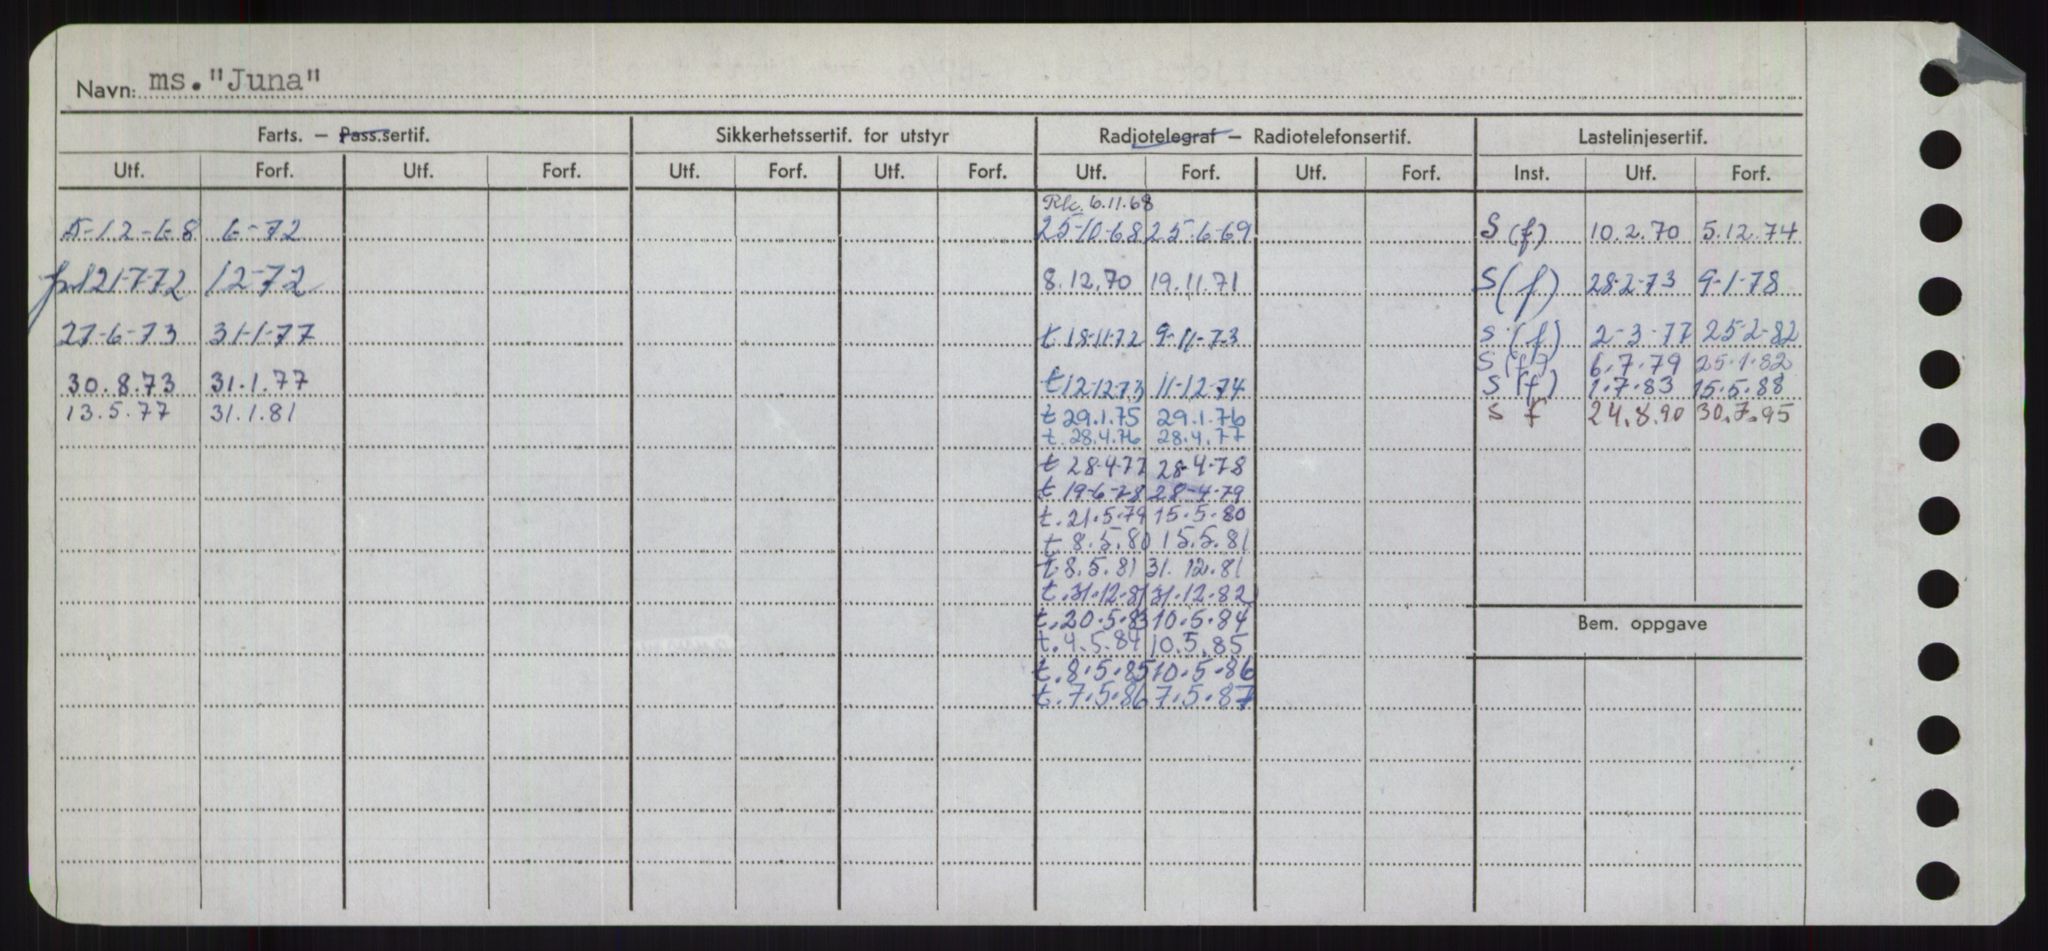 Navn: ms. "Juna"
Farts. — Pass.sertif. Sikkerhetssertif. for utstyr Radiotelegraf — Radiotelefonsertif. Lastelinjesertif.
Utf. Forf. Utf. Forf. Utf. Forf. Utf. Forf. Utf. Forf. Utf. Forf. Inst. Utf. Forf.
Rk. 6.11.68
5-12-68 6-72 25-10-68 25.6-69 S (f) 10.2.70 5.12.74
21-7-72 12-72 8.12.70 19.11.71 S (f) 28-2-73 9-1-78
27-6-73 31-1-77 t 18-11-72 9-11-73 S (f) 2-3-77 25-2-82
S (f) 6.7.79 25.1.82
30.8.73 31.1.77 t 12-12-73 11-12-74 S (f) 1.7.83 15.5.88
13.5.77 31.1.81 t 29.1.75 29.1.76 s f 24.8.90 30.7.95
t. 28.4.76 28.4.77
t 28-4-77 28-4-78
t 19-6-78 28-4-79
t. 21.5.79 15.5.80
t 8.5.80 15.5.81
t. 8.5.81 31.12.81
t. 31.12.81 31.12.82
t. 20.5.83 10.5.84
Bem. oppgave
t. 4.5.84 10.5.85
t. 8.5.85 10.5.86
t. 7.5.86 7.5.87